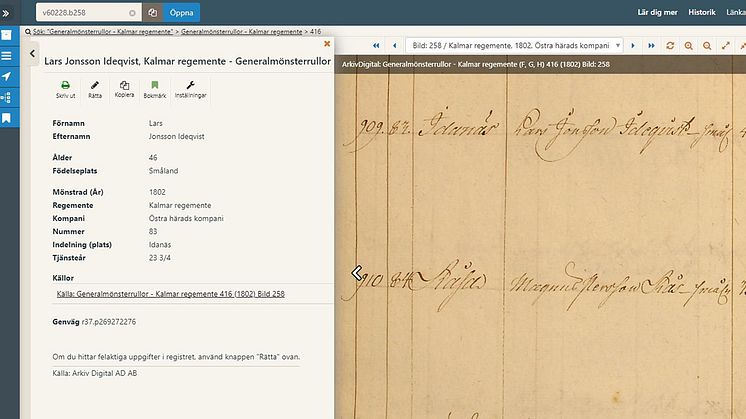 v60228.b258
Öppna
Lär dig mer
Historik
Sök: "Generalmönsterrullor - Kalmar regemente" > Generalmönsterrullor - Kalmar regemente > 416
Bild: 258 / Kalmar regemente, 1802, Östra härads kompani
Lars Jonsson Ideqvist, Kalmar regemente - Generalmönsterrullor
ArkivDigital: Generalmönsterrullor - Kalmar regemente (F, G, H) 416 (1802) Bild: 258
Skriv ut
Rätta
Kopiera
Bokmärk
Inställningar
Förnamn Lars
Efternamn Jonsson Ideqvist
Ålder 46
Födelseplats Småland
Mönstrad (År) 1802
Regemente Kalmar regemente
Kompani Östra härads kompani
Nummer 83
Indelning (plats) Idanäs
Tjänsteår 23 3/4
Källor
Källa: Generalmönsterrullor - Kalmar regemente 416 (1802) Bild 258
Genväg r37.p269272276
Om du hittar felaktiga uppgifter i registret, använd knappen "Rätta" ovan.
Källa: Arkiv Digital AD AB
909. 83. Idanäs Lars Jonsson Ideqvist
910 84 Magnus